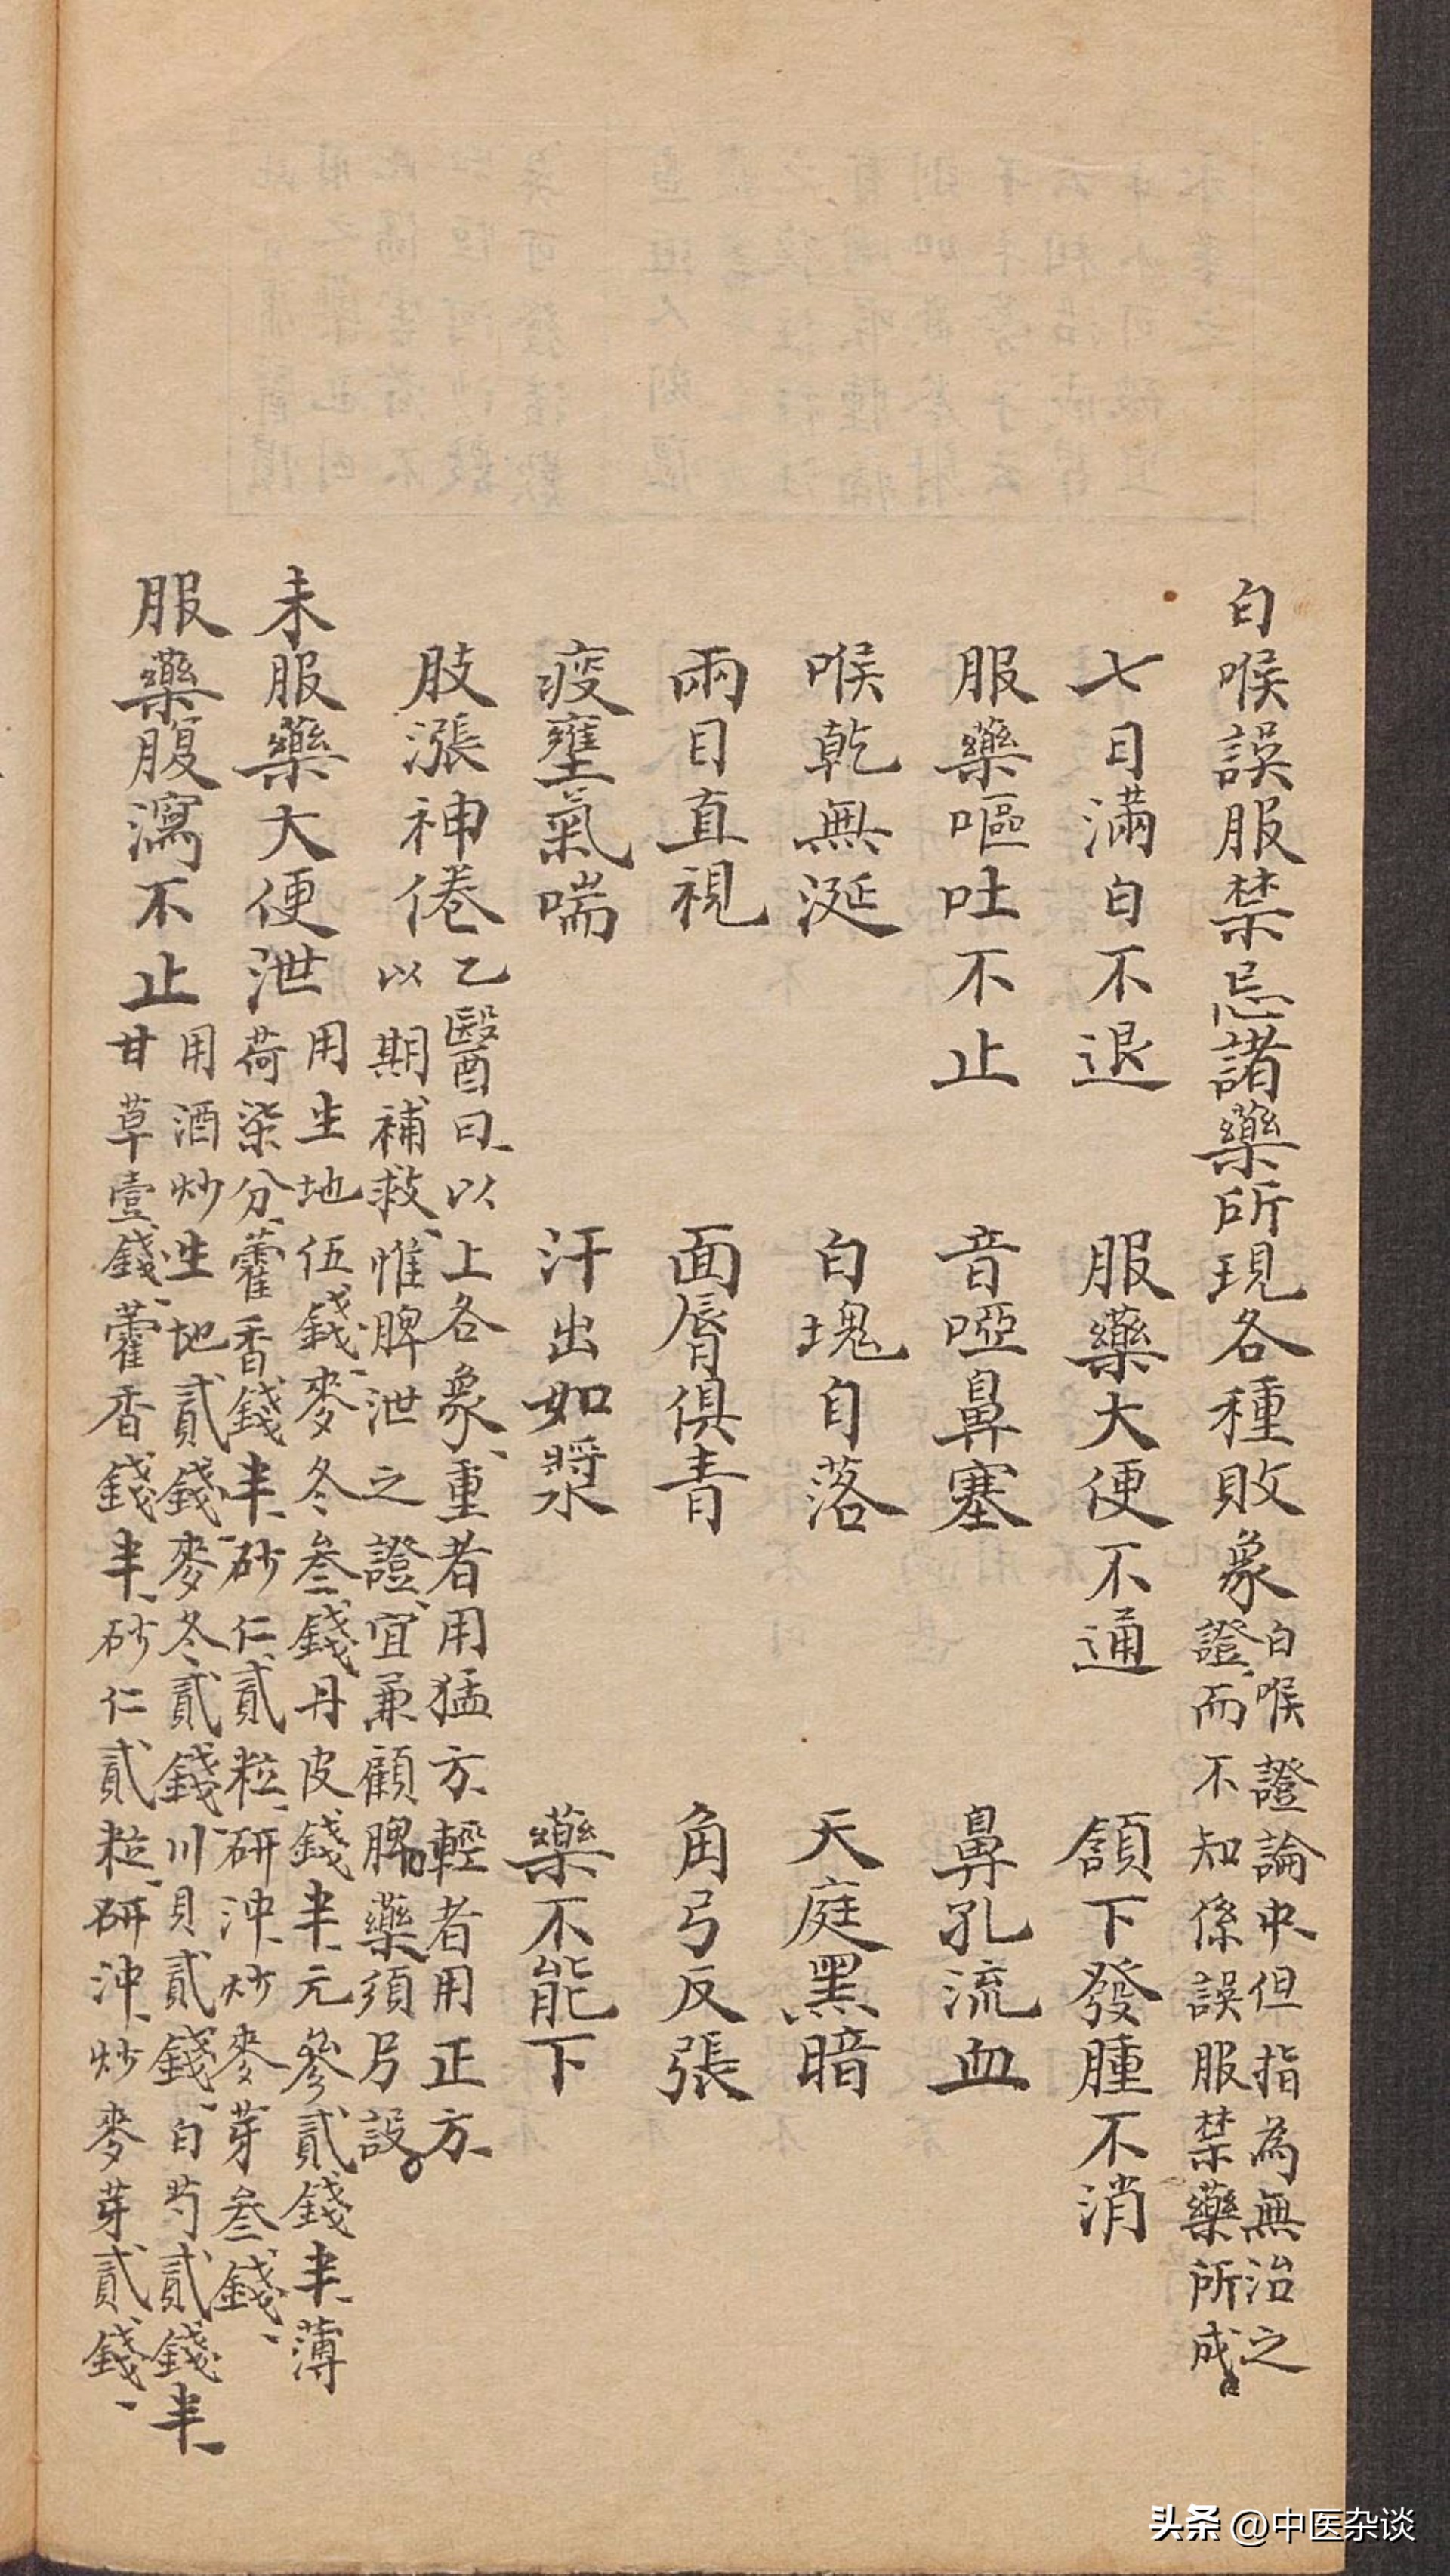 白喉誤服禁忌諸藥所現各種敗象
白喉證論中但指為無治之
證、而不知係誤服禁藥所成
七日滿白不退　服藥大便不通　頷下發腫不消
服藥嘔吐不止　音啞鼻塞　鼻孔流血
喉乾無涎　白塊自落　天庭黑暗
兩目直視　面唇俱青　角弓反張
痰壅氣喘　汗出如漿　藥不能下
肢漲神倦
乙醫曰、以上各象、重者用猛方、輕者用正方、
以期補救、惟脾泄之證、宜兼顧脾。藥須另設。
未服藥大便泄
用生地伍錢、麥冬叁錢、丹皮錢半、元參貳錢半、薄
荷柒分、藿香錢半、砂仁貳粒、研沖、炒麥芽叁錢、
服藥腹瀉不止
用酒炒生地貳錢、麥冬貳錢、川貝貳錢、白芍貳錢半、
甘草壹錢、藿香錢半、砂仁貳粒、研沖、炒麥芽貳錢、
头条 @中医杂谈